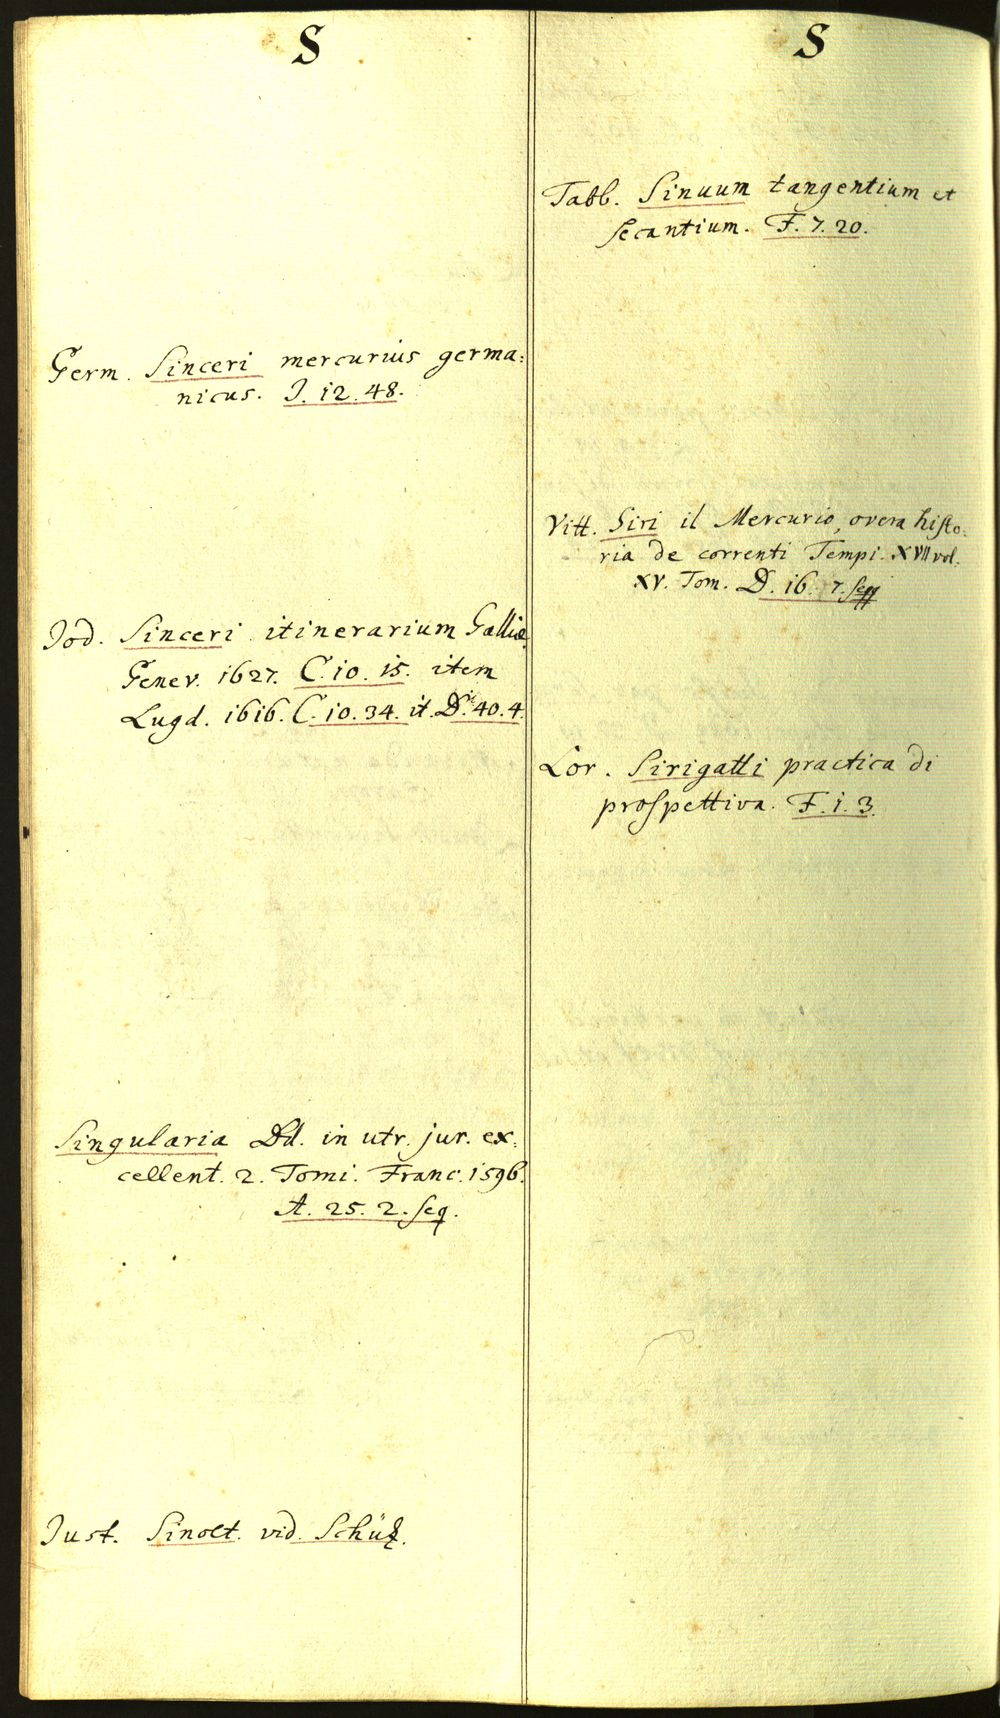 S
Germ. Sinceri mercurius germa:
nicus. J. 12. 48.
Jod. Sinceri itinerarium Galliæ
Genev. 1627. C. 10. 15. item
Lugd. 1616. C. 10. 34. it. D. 40. 4.
Singularia Dd. in utr. jur. ex:
cellent. 2. Tomi. Franc. 1596.
A. 25. 2. seq.
Just. Sinolt. vid. Schüz.
S
Tabb. Sinuum tangentium et
secantium. F. 7. 20.
Vitt. Siri il Mercurio, overa histo:
ria de correnti Tempi. XVII vol.
XV. Tom. D. 16. 7. seqq
Lor. Sirigatti practica di
prospettiva. F. 1. 3.